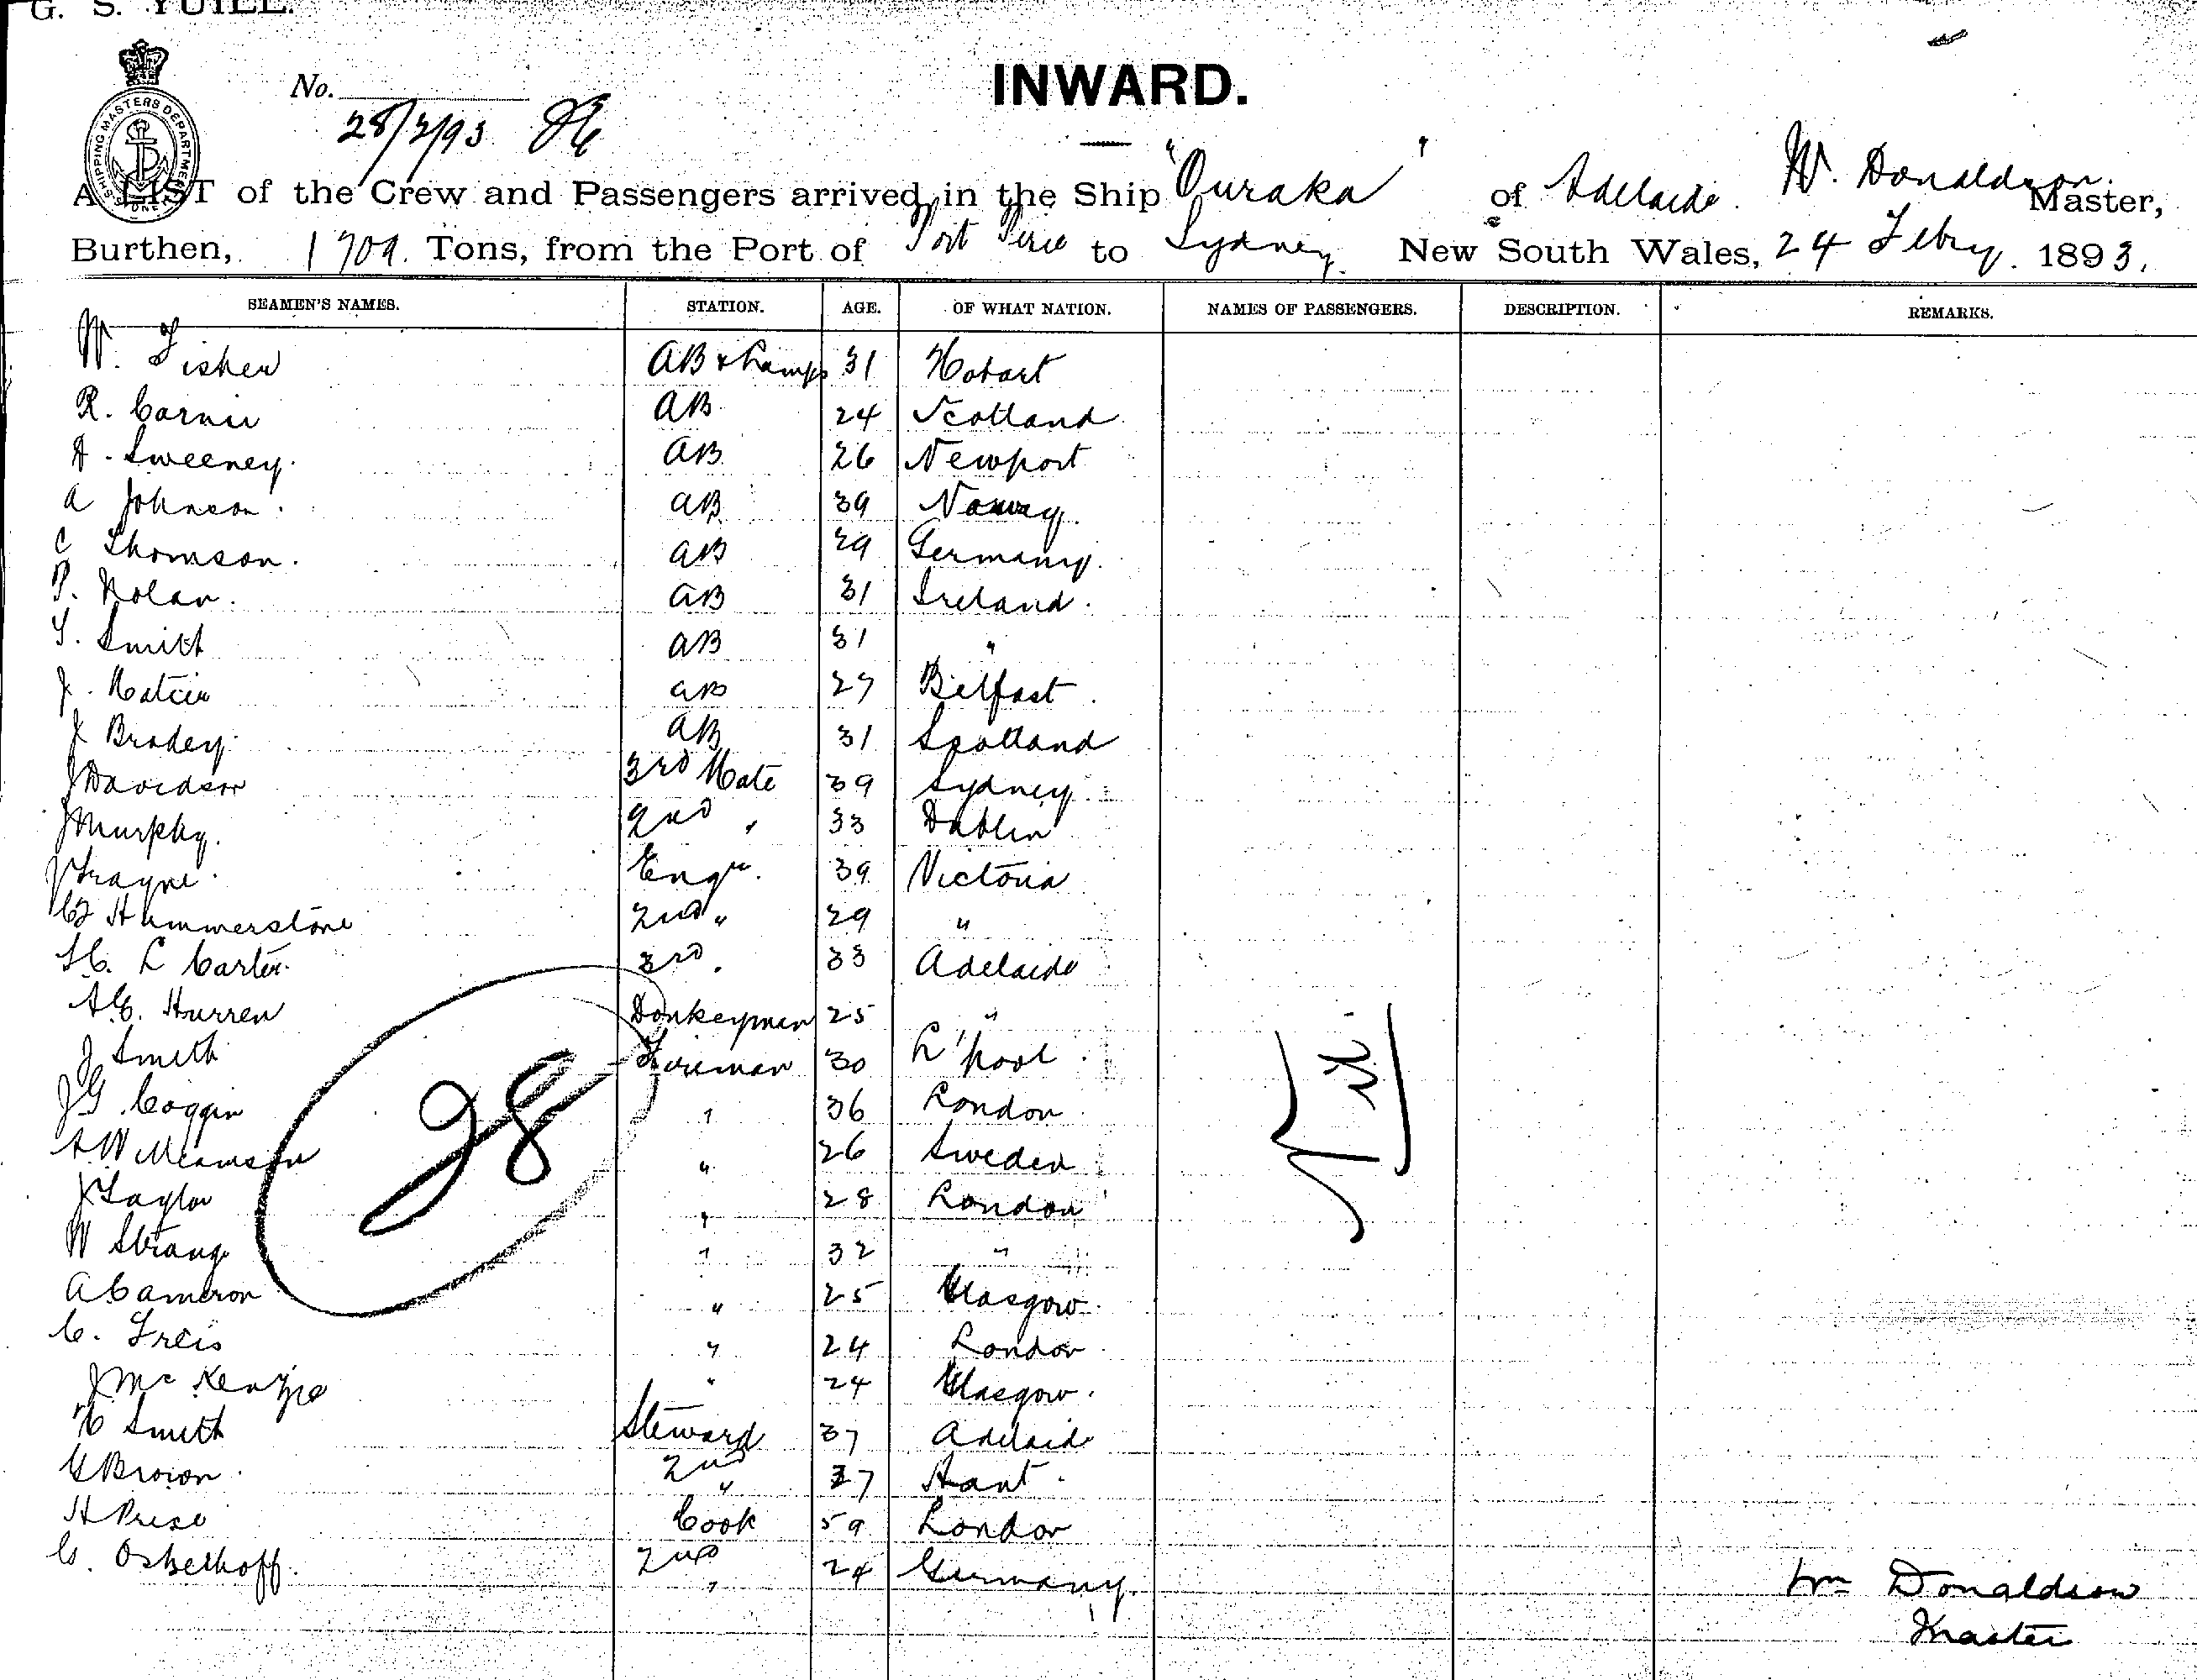 G. S. YUILL.
SHIPPING MASTERS DEPARTMENT
No.
28/2/93
INWARD.
A LIST of the Crew and Passengers arrived in the Ship "Ouraka" of Adelaide. W. Donaldson. Master,
Burthen, 1709. Tons, from the Port of Port Pirie to Sydney. New South Wales, 24 Febry. 1893.
SEAMEN'S NAMES. STATION. AGE. OF WHAT NATION. NAMES OF PASSENGERS. DESCRIPTION. REMARKS.
W. Fisher AB & Lamps 31 Hobart
R. Carnie AB 24 Scotland
A. Sweeney. AB 26 Newport
A Johnson. AB 39 Norway.
C Thomson. AB 29 Germany.
P. Nolan. AB 31 Ireland.
S. Smith AB 31 "
J. AB 27 Belfast.
J Bradey AB 31 Scotland
J Davidson 3rd Mate 39 Sydney
J Murphy. 2nd " 33 Dublin
J Trayne. Engr. 39 Victoria
Hummerstone 2nd " 29 "
H. L Carter. 3rd " 33 Adelaide
A.C. Hurren Donkeyman 25 "
J Smith Fireman 30 L'pool
JG Coggin " 36 London
A Williamson " 26 Sweden
J Taylor " 28 London
W Strang " 32 "
A Cameron " 25 Glasgow.
C. Freis " 24 London
J McKenzie " 24 Glasgow.
H Smith Steward 37 Adelaide
G Brown. 2nd " 27 Hant.
H Preso Cook 59 London
C. Osterhoff. 2nd " 24 Germany.
28
Nil.
Wm Donaldson
Master